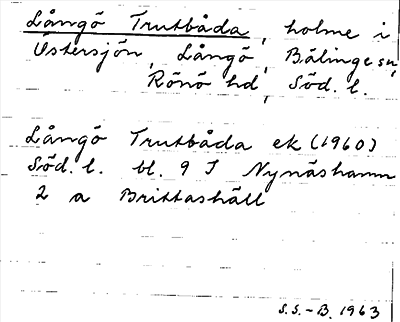 Långö Trutbåda, holme i
Östersjön, Långö, Bälinge sn,
Rönö hd, Söd. l.
Långö Trutbåda ek (1960)
Söd. l. bl. 9 I Nynäshamn
2 a Brittashäll
S.S.-B. 1963